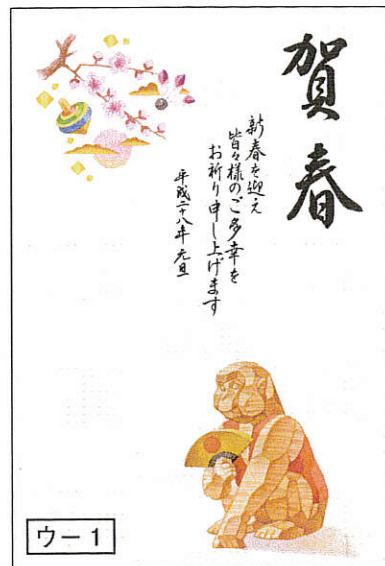 賀春
新春を迎え
皆々様のご多幸を
お祈り申し上げます
平成二十八年 元旦
ウー1